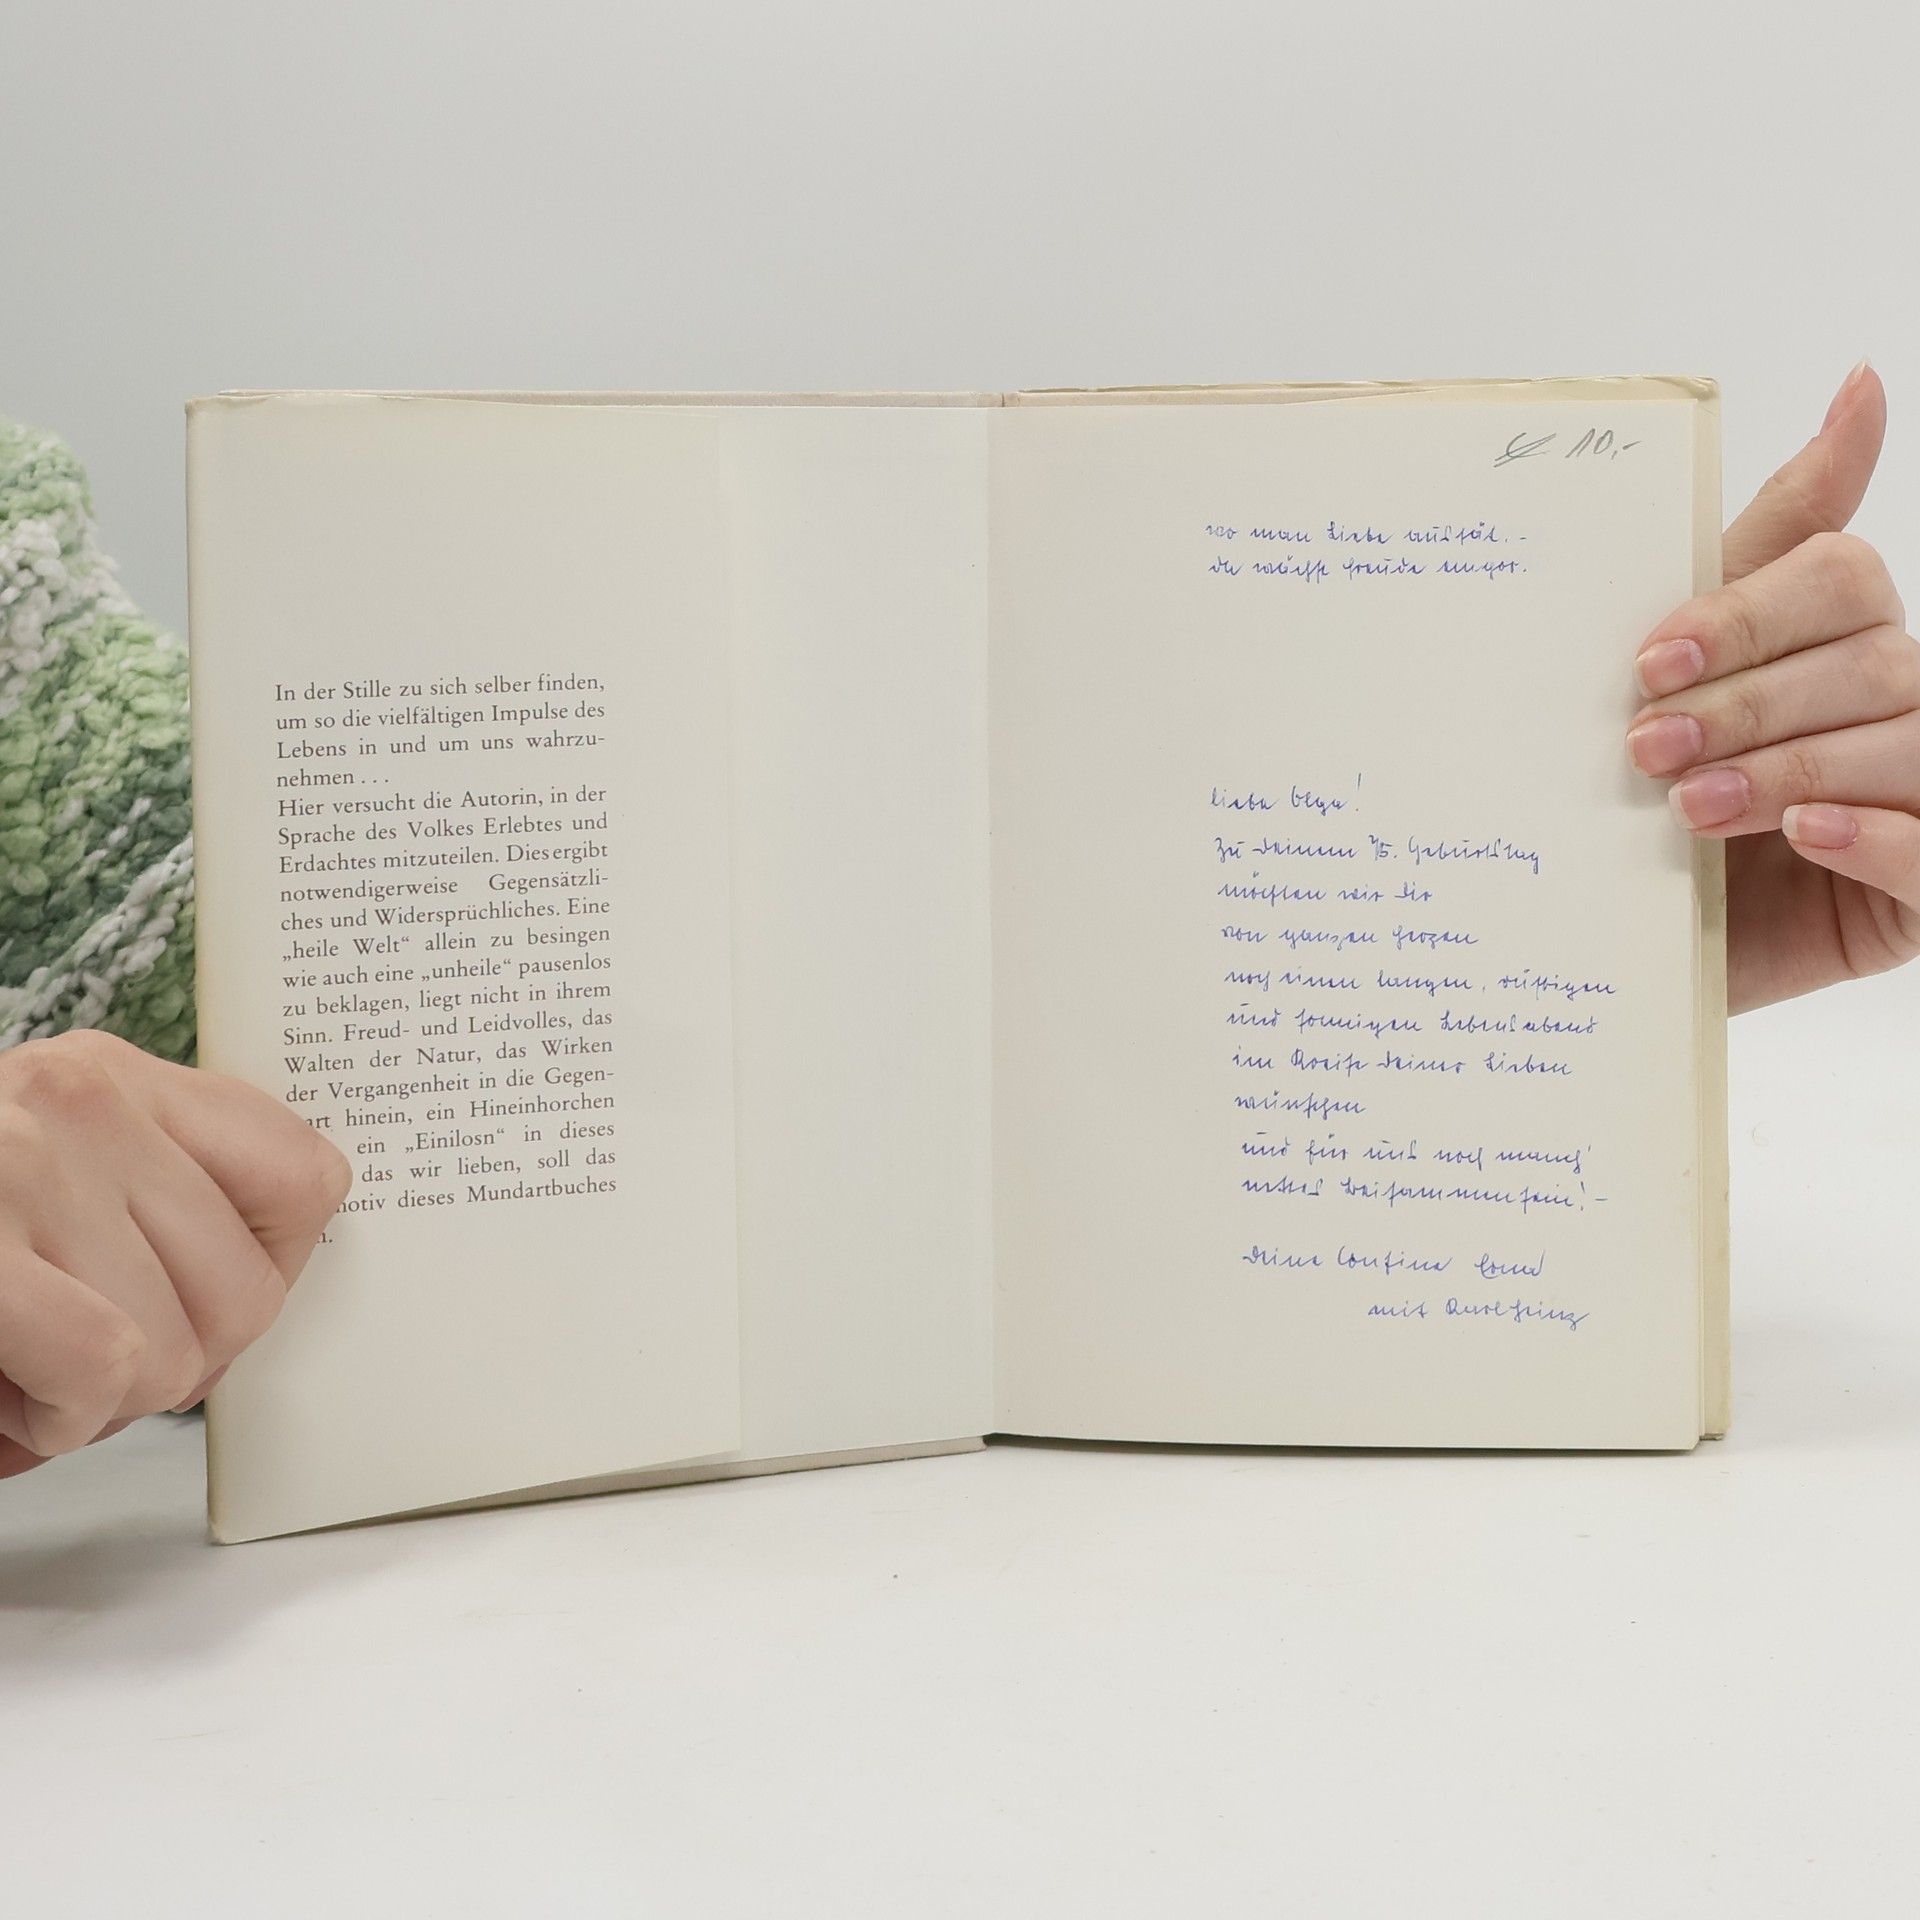 In der Stille zu sich selber finden,
um so die vielfältigen Impulse des
Lebens in und um uns wahrzu-
nehmen . . .
Hier versucht die Autorin, in der
Sprache des Volkes Erlebtes und
Erdachtes mitzuteilen. Dies ergibt
notwendigerweise Gegensätzli-
ches und Widersprüchliches. Eine
„heile Welt“ allein zu besingen
wie auch eine „unheile“ pausenlos
zu beklagen, liegt nicht in ihrem
Sinn. Freud- und Leidvolles, das
Walten der Natur, das Wirken
der Vergangenheit in die Gegen-
art hinein, ein Hineinhorchen
ein „Einilosn“ in dieses
das wir lieben, soll das
motiv dieses Mundartbuches
n.
10,-
wo man Liebe aussät. -
da wächst Freude empor.
Liebe Olga!
Zu Deinem 75. Geburtstag
möchten wir Dir
von ganzen Herzen
noch einen langen, rüstigen
und sonnigen Lebensabend
im Kreise Deiner Lieben
wünschen
und für uns noch manch'
nettes Beisammensein! -
Deine Cousine Erna
mit Karlheinz